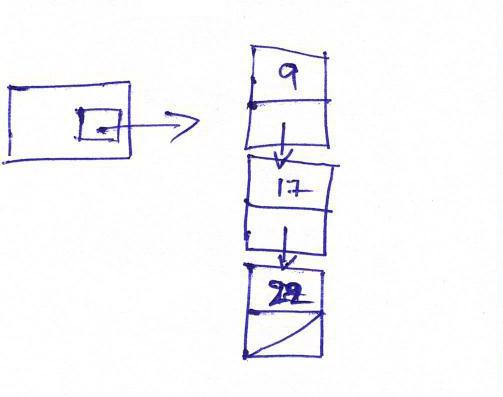 9
17
22